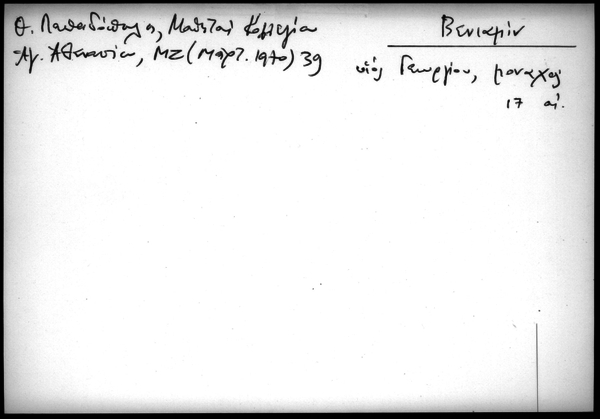 Θ. Παπαδόπουλος, Μαθηταί Κολλεγίου
Αγ. Αθανασίου, ΜΖ (Μαρτ. 1970) 39
Βενιαμίν
υἱός Γεωργίου, μοναχός
17 αἰ.